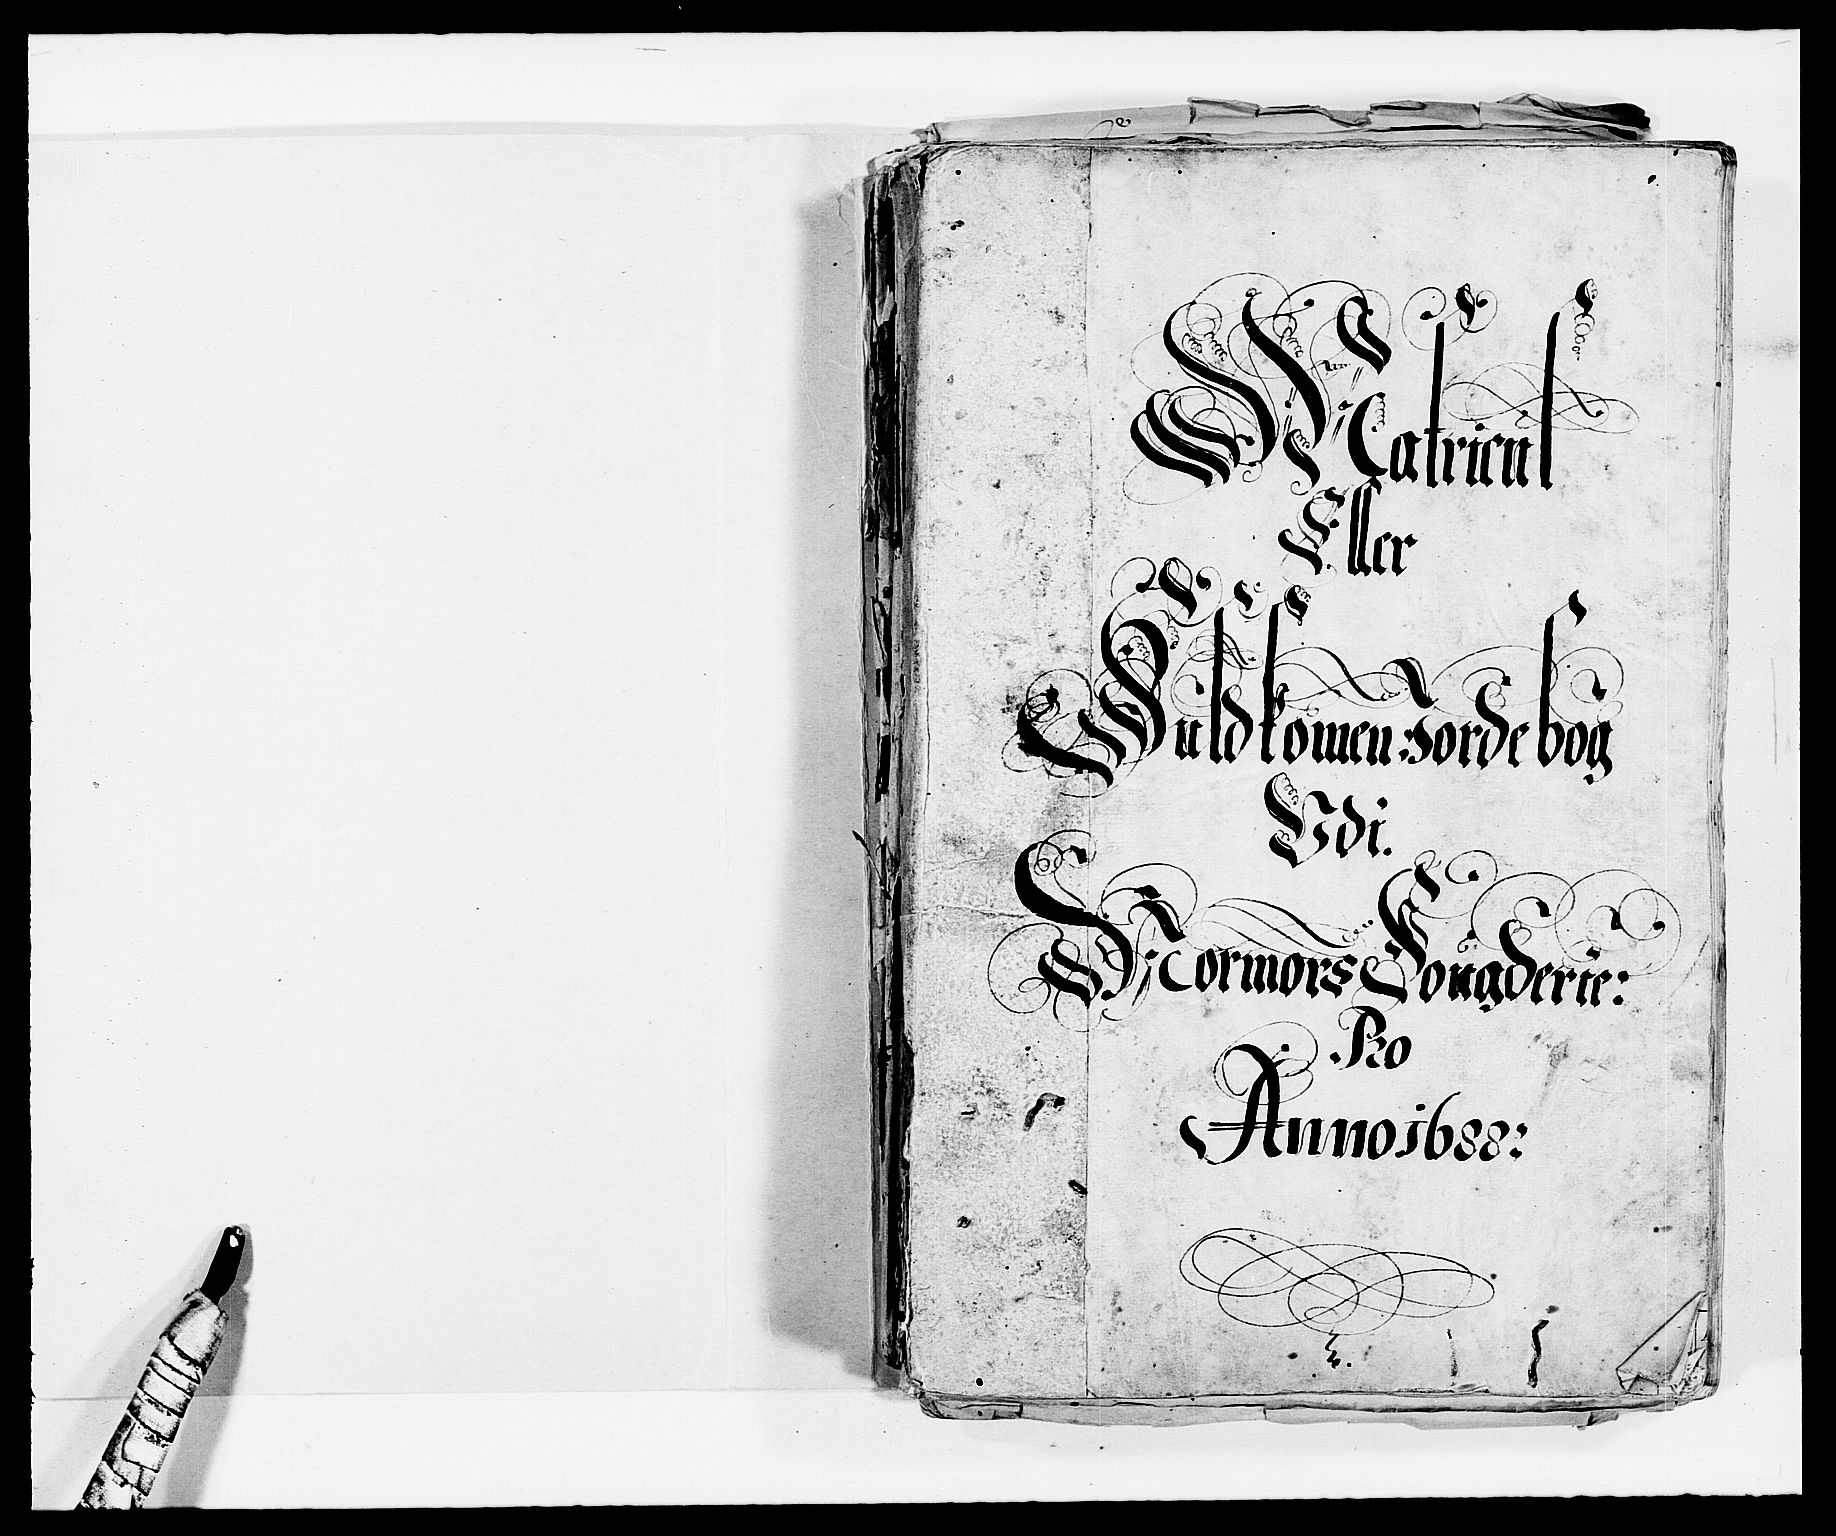 Matricul
Eller
Fuldkomen Jordebog
Udi.
Normors Fougderie:
Pro
Anno 1688: